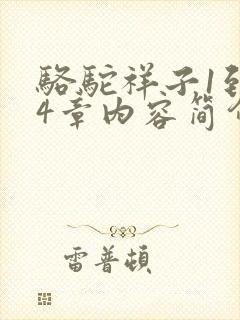 駱駝祥子1到
4章内容简介
雷普頓